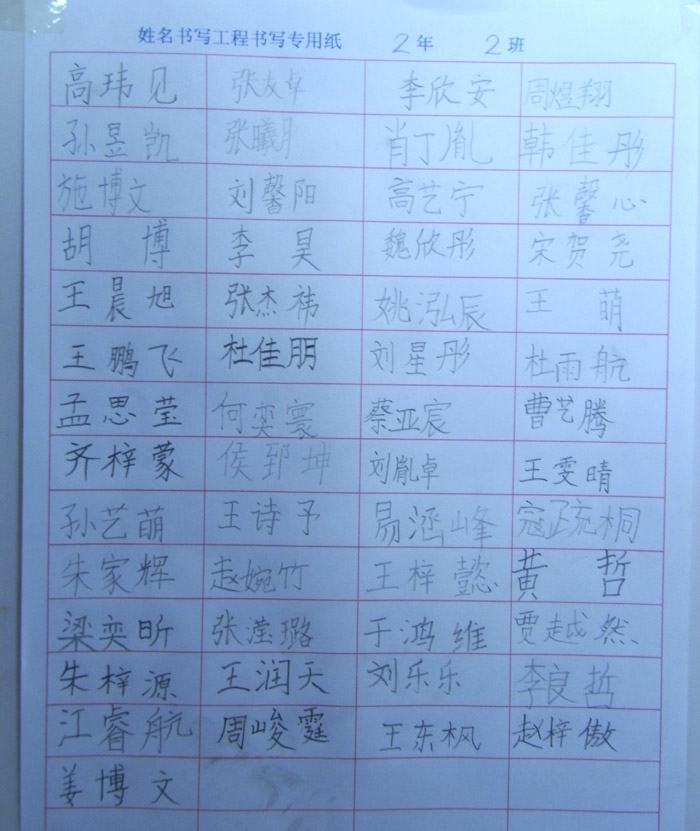 姓名书写工程书写专用纸 2年 2班
高玮见 张友卓 李欣安 周煜翔
孙昱凯 张曦月 肖丁胤 韩佳彤
施博文 刘馨阳 高艺宁 张馨心
胡博 李昊 魏欣彤 宋贺尧
王晨旭 张杰祎 姚泓辰 王萌
王鹏飞 杜佳朋 刘星彤 杜雨航
孟思莹 何奕寰 蔡亚宸 曹艺腾
齐梓蒙 侯郅坤 刘胤卓 王雯晴
孙艺萌 王诗予 易涵峰 寇疏桐
朱家辉 赵婉竹 王梓懿 黄哲
梁奕昕 张滢璐 于鸿维 贾越然
朱梓源 王润天 刘乐乐 李良哲
江睿航 周峻霆 王东枫 赵梓傲
姜博文